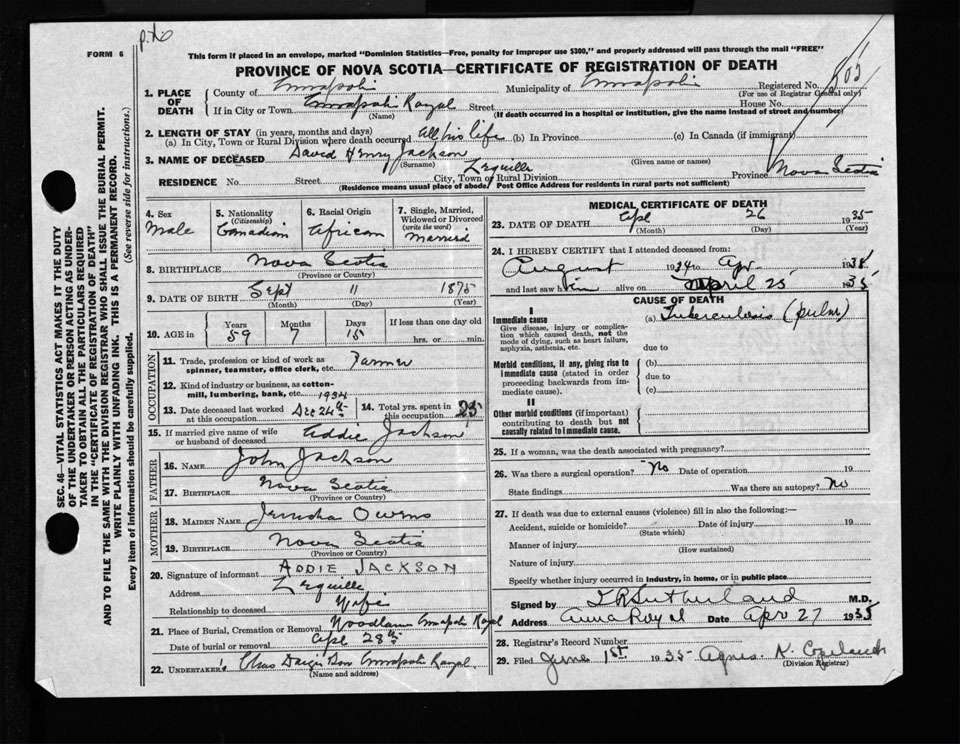 FORM 6
This form if placed in an envelope, marked "Dominion Statistics—Free, penalty for improper use $300," and properly addressed will pass through the mail "FREE"
PROVINCE OF NOVA SCOTIA—CERTIFICATE OF REGISTRATION OF DEATH
1. PLACE OF DEATH
County of Annapolis Municipality of Annapolis Registered No.
(For use of Registrar General only)
If in City or Town Annapolis Royal Street House No.
(Name) (If death occurred in a hospital or institution, give the name instead of street and number)
2. LENGTH OF STAY (in years, months and days)
(a) In City, Town or Rural Division where death occurred All his life (b) In Province (c) In Canada (if immigrant)
3. NAME OF DECEASED David Henry Jackson
(Surname) (Given name or names)
RESIDENCE No. Street City, Town or Rural Division Lequille Province Nova Scotia
(Residence means usual place of abode. Post Office Address for residents in rural parts not sufficient)
4. Sex Male
5. Nationality (Citizenship) Canadian
6. Racial Origin African
7. Single, Married, Widowed or Divorced (write the word) Married
8. BIRTHPLACE Nova Scotia
(Province or Country)
9. DATE OF BIRTH Sept 11 1875
(Month) (Day) (Year)
10. AGE in Years 59 Months 7 Days 15 If less than one day old hrs. or min.
OCCUPATION
11. Trade, profession or kind of work as spinner, teamster, office clerk, etc. Farmer
12. Kind of industry or business, as cotton-mill, lumbering, bank, etc.
13. Date deceased last worked at this occupation Dec 24th 1934
14. Total yrs. spent in this occupation
15. If married give name of wife or husband of deceased Addie Jackson
FATHER
16. NAME John Jackson
17. BIRTHPLACE Nova Scotia
(Province or Country)
MOTHER
18. MAIDEN NAME Owens
19. BIRTHPLACE Nova Scotia
(Province or Country)
20. Signature of informant ADDIE JACKSON
Address Lequille
Relationship to deceased Wife
21. Place of Burial, Cremation or Removal Woodlawn Annapolis Royal
Date of burial or removal Apl 28th
22. UNDERTAKER Annapolis Royal
(Name and address)
MEDICAL CERTIFICATE OF DEATH
23. DATE OF DEATH Apl 26 1935
(Month) (Day) (Year)
24. I HEREBY CERTIFY that I attended deceased from:
August 1934 to Apr 1935
and last saw him alive on April 25 1935
CAUSE OF DEATH
I
Immediate cause
Give disease, injury or complication which caused death, not the mode of dying, such as heart failure, asphyxia, asthenia, etc.
(a) Tuberculosis (pulm)
due to
Morbid conditions, if any, giving rise to immediate cause (stated in order proceeding backwards from immediate cause).
(b)
due to
(c)
II
Other morbid conditions (if important) contributing to death but not causally related to immediate cause.
25. If a woman, was the death associated with pregnancy?
26. Was there a surgical operation? No Date of operation 19
State findings Was there an autopsy? No
27. If death was due to external causes (violence) fill in also the following:—
Accident, suicide or homicide? Date of injury 19
(State which)
Manner of injury
(How sustained)
Nature of injury
Specify whether injury occurred in industry, in home, or in public place
Signed by Sutherland M.D.
Address Anna Royal Date Apr 27 1935
28. Registrar's Record Number
29. Filed June 1st 1935 Agnes K. Copeland
(Division Registrar)
SEC. 46—VITAL STATISTICS ACT MAKES IT THE DUTY
OF THE UNDERTAKER OR PERSON ACTING AS UNDERTAKER TO OBTAIN ALL THE PARTICULARS REQUIRED
IN THE "CERTIFICATE OF REGISTRATION OF DEATH"
AND TO FILE THE SAME WITH THE DIVISION REGISTRAR WHO SHALL ISSUE THE BURIAL PERMIT.
WRITE PLAINLY WITH UNFADING INK. THIS IS A PERMANENT RECORD.
Every item of information should be carefully supplied. (See reverse side for instructions.)